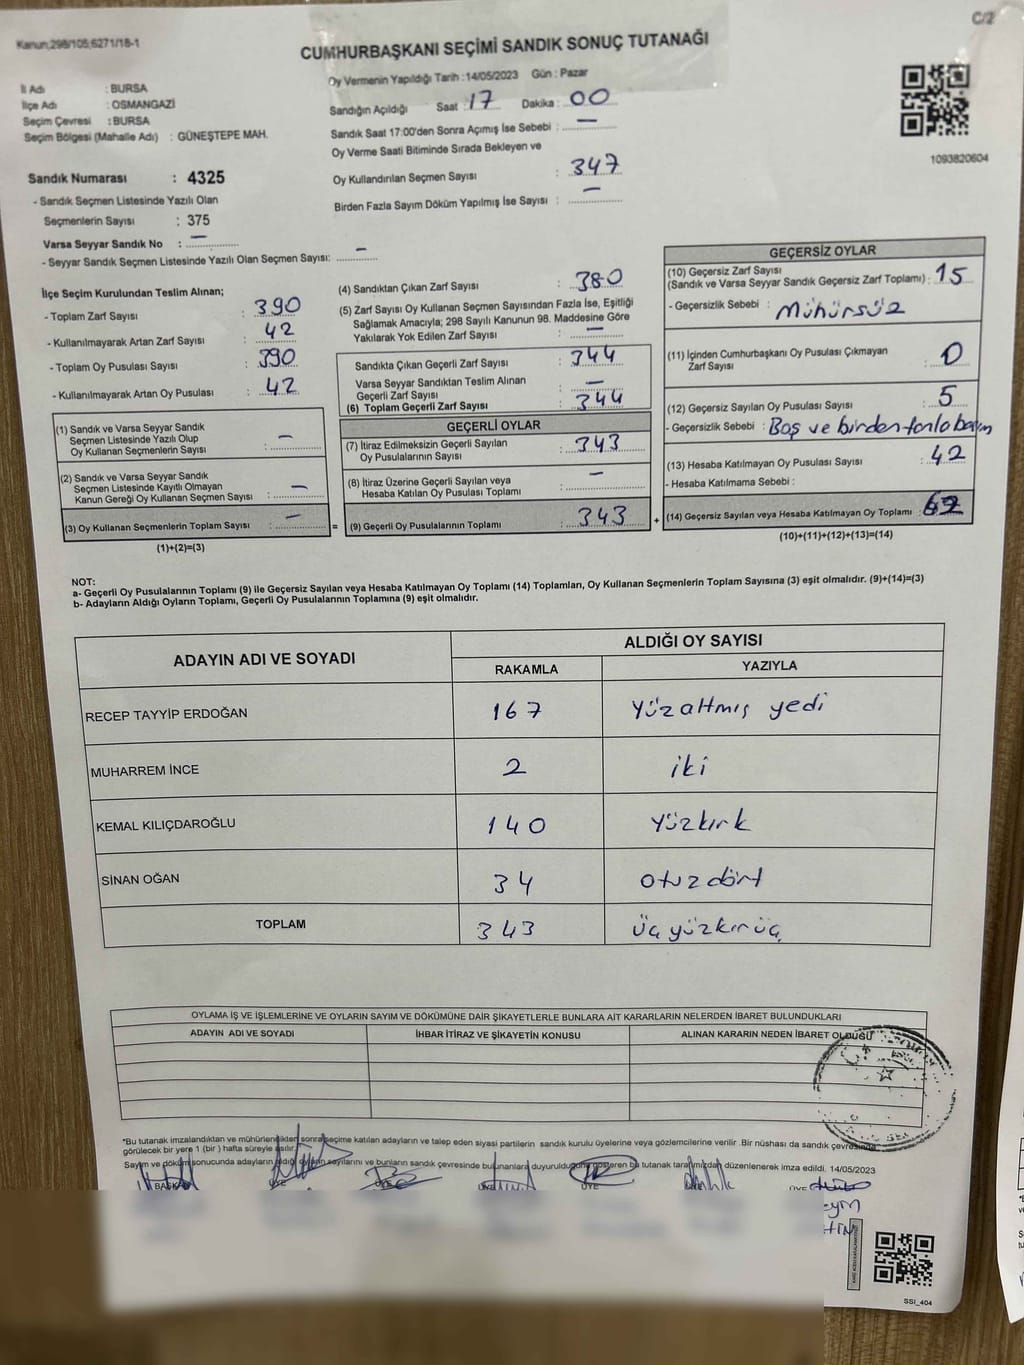 C/2
Kanun;298/105;6271/18-1
CUMHURBAŞKANI SEÇİMİ SANDIK SONUÇ TUTANAĞI
İl Adı : BURSA
İlçe Adı : OSMANGAZİ
Seçim Çevresi : BURSA
Seçim Bölgesi (Mahalle Adı) : GÜNEŞTEPE MAH.
Oy Vermenin Yapıldığı Tarih :14/05/2023 Gün : Pazar
Sandığın Açıldığı Saat : 17 Dakika : 00
Sandık Saat 17:00'den Sonra Açımış İse Sebebi : —
Oy Verme Saati Bitiminde Sırada Bekleyen ve
Oy Kullandırılan Seçmen Sayısı : 347
Birden Fazla Sayım Döküm Yapılmış İse Sayısı : —
1093820604
Sandık Numarası : 4325
- Sandık Seçmen Listesinde Yazılı Olan
Seçmenlerin Sayısı : 375
Varsa Seyyar Sandık No : —
- Seyyar Sandık Seçmen Listesinde Yazılı Olan Seçmen Sayısı: —
İlçe Seçim Kurulundan Teslim Alınan;
- Toplam Zarf Sayısı : 390
- Kullanılmayarak Artan Zarf Sayısı : 42
- Toplam Oy Pusulası Sayısı : 390
- Kullanılmayarak Artan Oy Pusulası : 42
(1) Sandık ve Varsa Seyyar Sandık
Seçmen Listesinde Yazılı Olup
Oy Kullanan Seçmenlerin Sayısı : —
(2) Sandık ve Varsa Seyyar Sandık
Seçmen Listesinde Kayıtlı Olmayan
Kanun Gereği Oy Kullanan Seçmen Sayısı : —
(3) Oy Kullanan Seçmenlerin Toplam Sayısı : —
(1)+(2)=(3)
(4) Sandıktan Çıkan Zarf Sayısı : 380
(5) Zarf Sayısı Oy Kullanan Seçmen Sayısından Fazla İse, Eşitliği
Sağlamak Amacıyla; 298 Sayılı Kanunun 98. Maddesine Göre
Yakılarak Yok Edilen Zarf Sayısı : —
Sandıkta Çıkan Geçerli Zarf Sayısı : 344
Varsa Seyyar Sandıktan Teslim Alınan
Geçerli Zarf Sayısı : —
(6) Toplam Geçerli Zarf Sayısı : 344
GEÇERLİ OYLAR
(7) İtiraz Edilmeksizin Geçerli Sayılan
Oy Pusulalarının Sayısı : 343
(8) İtiraz Üzerine Geçerli Sayılan veya
Hesaba Katılan Oy Pusulası Toplamı : —
= (9) Geçerli Oy Pusulalarının Toplamı : 343 +
GEÇERSİZ OYLAR
(10) Geçersiz Zarf Sayısı
(Sandık ve Varsa Seyyar Sandık Geçersiz Zarf Toplamı) : 15
- Geçersizlik Sebebi : Mühürsüz
(11) İçinden Cumhurbaşkanı Oy Pusulası Çıkmayan
Zarf Sayısı : 0
(12) Geçersiz Sayılan Oy Pusulası Sayısı : 5
- Geçersizlik Sebebi : Boş ve birden fazla basım
(13) Hesaba Katılmayan Oy Pusulası Sayısı : 42
- Hesaba Katılmama Sebebi :
(14) Geçersiz Sayılan veya Hesaba Katılmayan Oy Toplamı : 62
(10)+(11)+(12)+(13)=(14)
NOT:
a- Geçerli Oy Pusulalarının Toplamı (9) ile Geçersiz Sayılan veya Hesaba Katılmayan Oy Toplamı (14) Toplamları, Oy Kullanan Seçmenlerin Toplam Sayısına (3) eşit olmalıdır. (9)+(14)=(3)
b- Adayların Aldığı Oyların Toplamı, Geçerli Oy Pusulalarının Toplamına (9) eşit olmalıdır.
ADAYIN ADI VE SOYADI
ALDIĞI OY SAYISI
RAKAMLA YAZIYLA
RECEP TAYYİP ERDOĞAN 167 Yüzaltmış yedi
MUHARREM İNCE 2 iki
KEMAL KILIÇDAROĞLU 140 Yüzkırk
SİNAN OĞAN 34 otuzdört
TOPLAM 343 üçyüzkırüç
OYLAMA İŞ VE İŞLEMLERİNE VE OYLARIN SAYIM VE DÖKÜMÜNE DAİR ŞİKAYETLERLE BUNLARA AİT KARARLARIN NELERDEN İBARET BULUNDUKLARI
ADAYIN ADI VE SOYADI İHBAR İTİRAZ VE ŞİKAYETİN KONUSU ALINAN KARARIN NEDEN İBARET OLDUĞU
*Bu tutanak imzalandıktan ve mühürlendikten sonra seçime katılan adayların ve talep eden siyasi partilerin sandık kurulu üyelerine veya gözlemcilerine verilir .Bir nüshası da sandık çevresinde
görülecek bir yere 1 (bir ) hafta süreyle asılır.
Sayım ve döküm sonucunda adayların aldığı oyların sayılarını ve bunların sandık çevresinde bulunanlara duyurulduğunu gösteren bu tutanak tarafımızdan düzenlenerek imza edildi. 14/05/2023
BAŞKAN ÜYE ÜYE ÜYE ÜYE ÜYE ÜYE
SSI_404